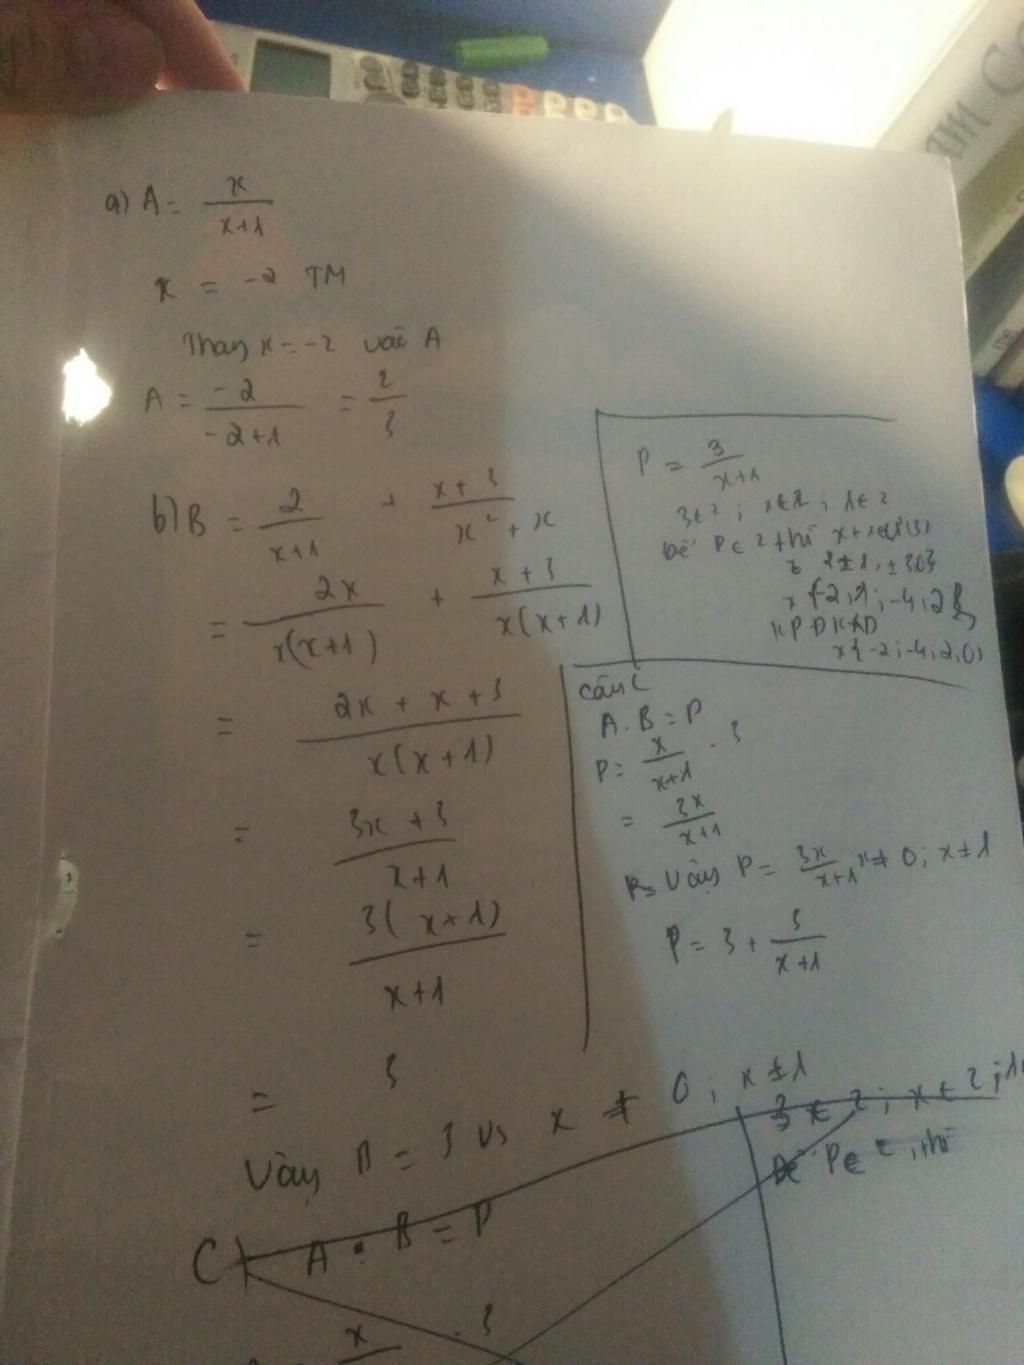 a) A = x/(x+1)
x = -2 TM
Thay x = -2 vào A
A = -2/(-2+1) = 2/3
b) B = 2/(x+1) + (x+3)/(x²+x)
= 2x/(x(x+1)) + (x+3)/(x(x+1))
= (2x+x+3)/(x(x+1))
= (3x+3)/(x+1)
= 3(x+1)/(x+1)
= 3
Vậy B = 3 vs x ≠ 0; x ± 1
C) A . B = P
x . 3
P = 3/(x+1)
3 ∈ Z; x ∈ Z; 1 ∈ Z
Để P ∈ Z thì
x {-2; -4; 2; 0}
câu C
A . B = P
P = x/(x+1) . 3
= 3x/(x+1)
Vậy P = 3x/(x+1) x ≠ 0; x ± 1
P = 3 + 3/(x+1)
3 ∈ Z; x ∈ Z;
Để P ∈ Z, thì
am